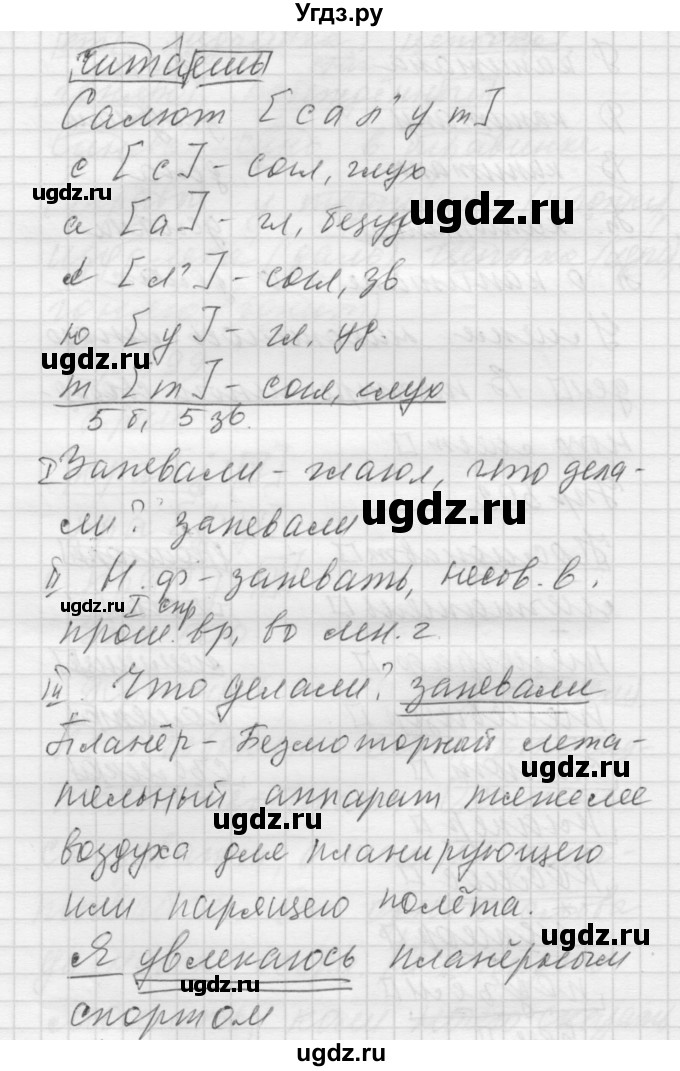 Угдз.ру
читаешь
Салют [с а л' у т]
с [с] - согл, глух
ugdz.ru
ugdz.ru
а [а] - гл, безуд
л [л'] - согл, зв
ю [у] - гл. уд.
ugdz.ru
т [т] - согл, глух
5 б, 5 зв.
I Запевали - глагол, что дела-
ли? запевали
ugdz.ru
II Н. ф - запевать, несов. в.
ugdz.ru
I спр
прош. вр, во мн. ч
III. Что делали? запевали
Планёр - Безмоторный лета-
ugdz.ru
тельный аппарат тяжелее
ugdz.ru
воздуха для планирующего
или парящего полёта.
ugdz.ru
Я увлекаюсь планёрным
ugdz.ru
спортом
ugdz.ru